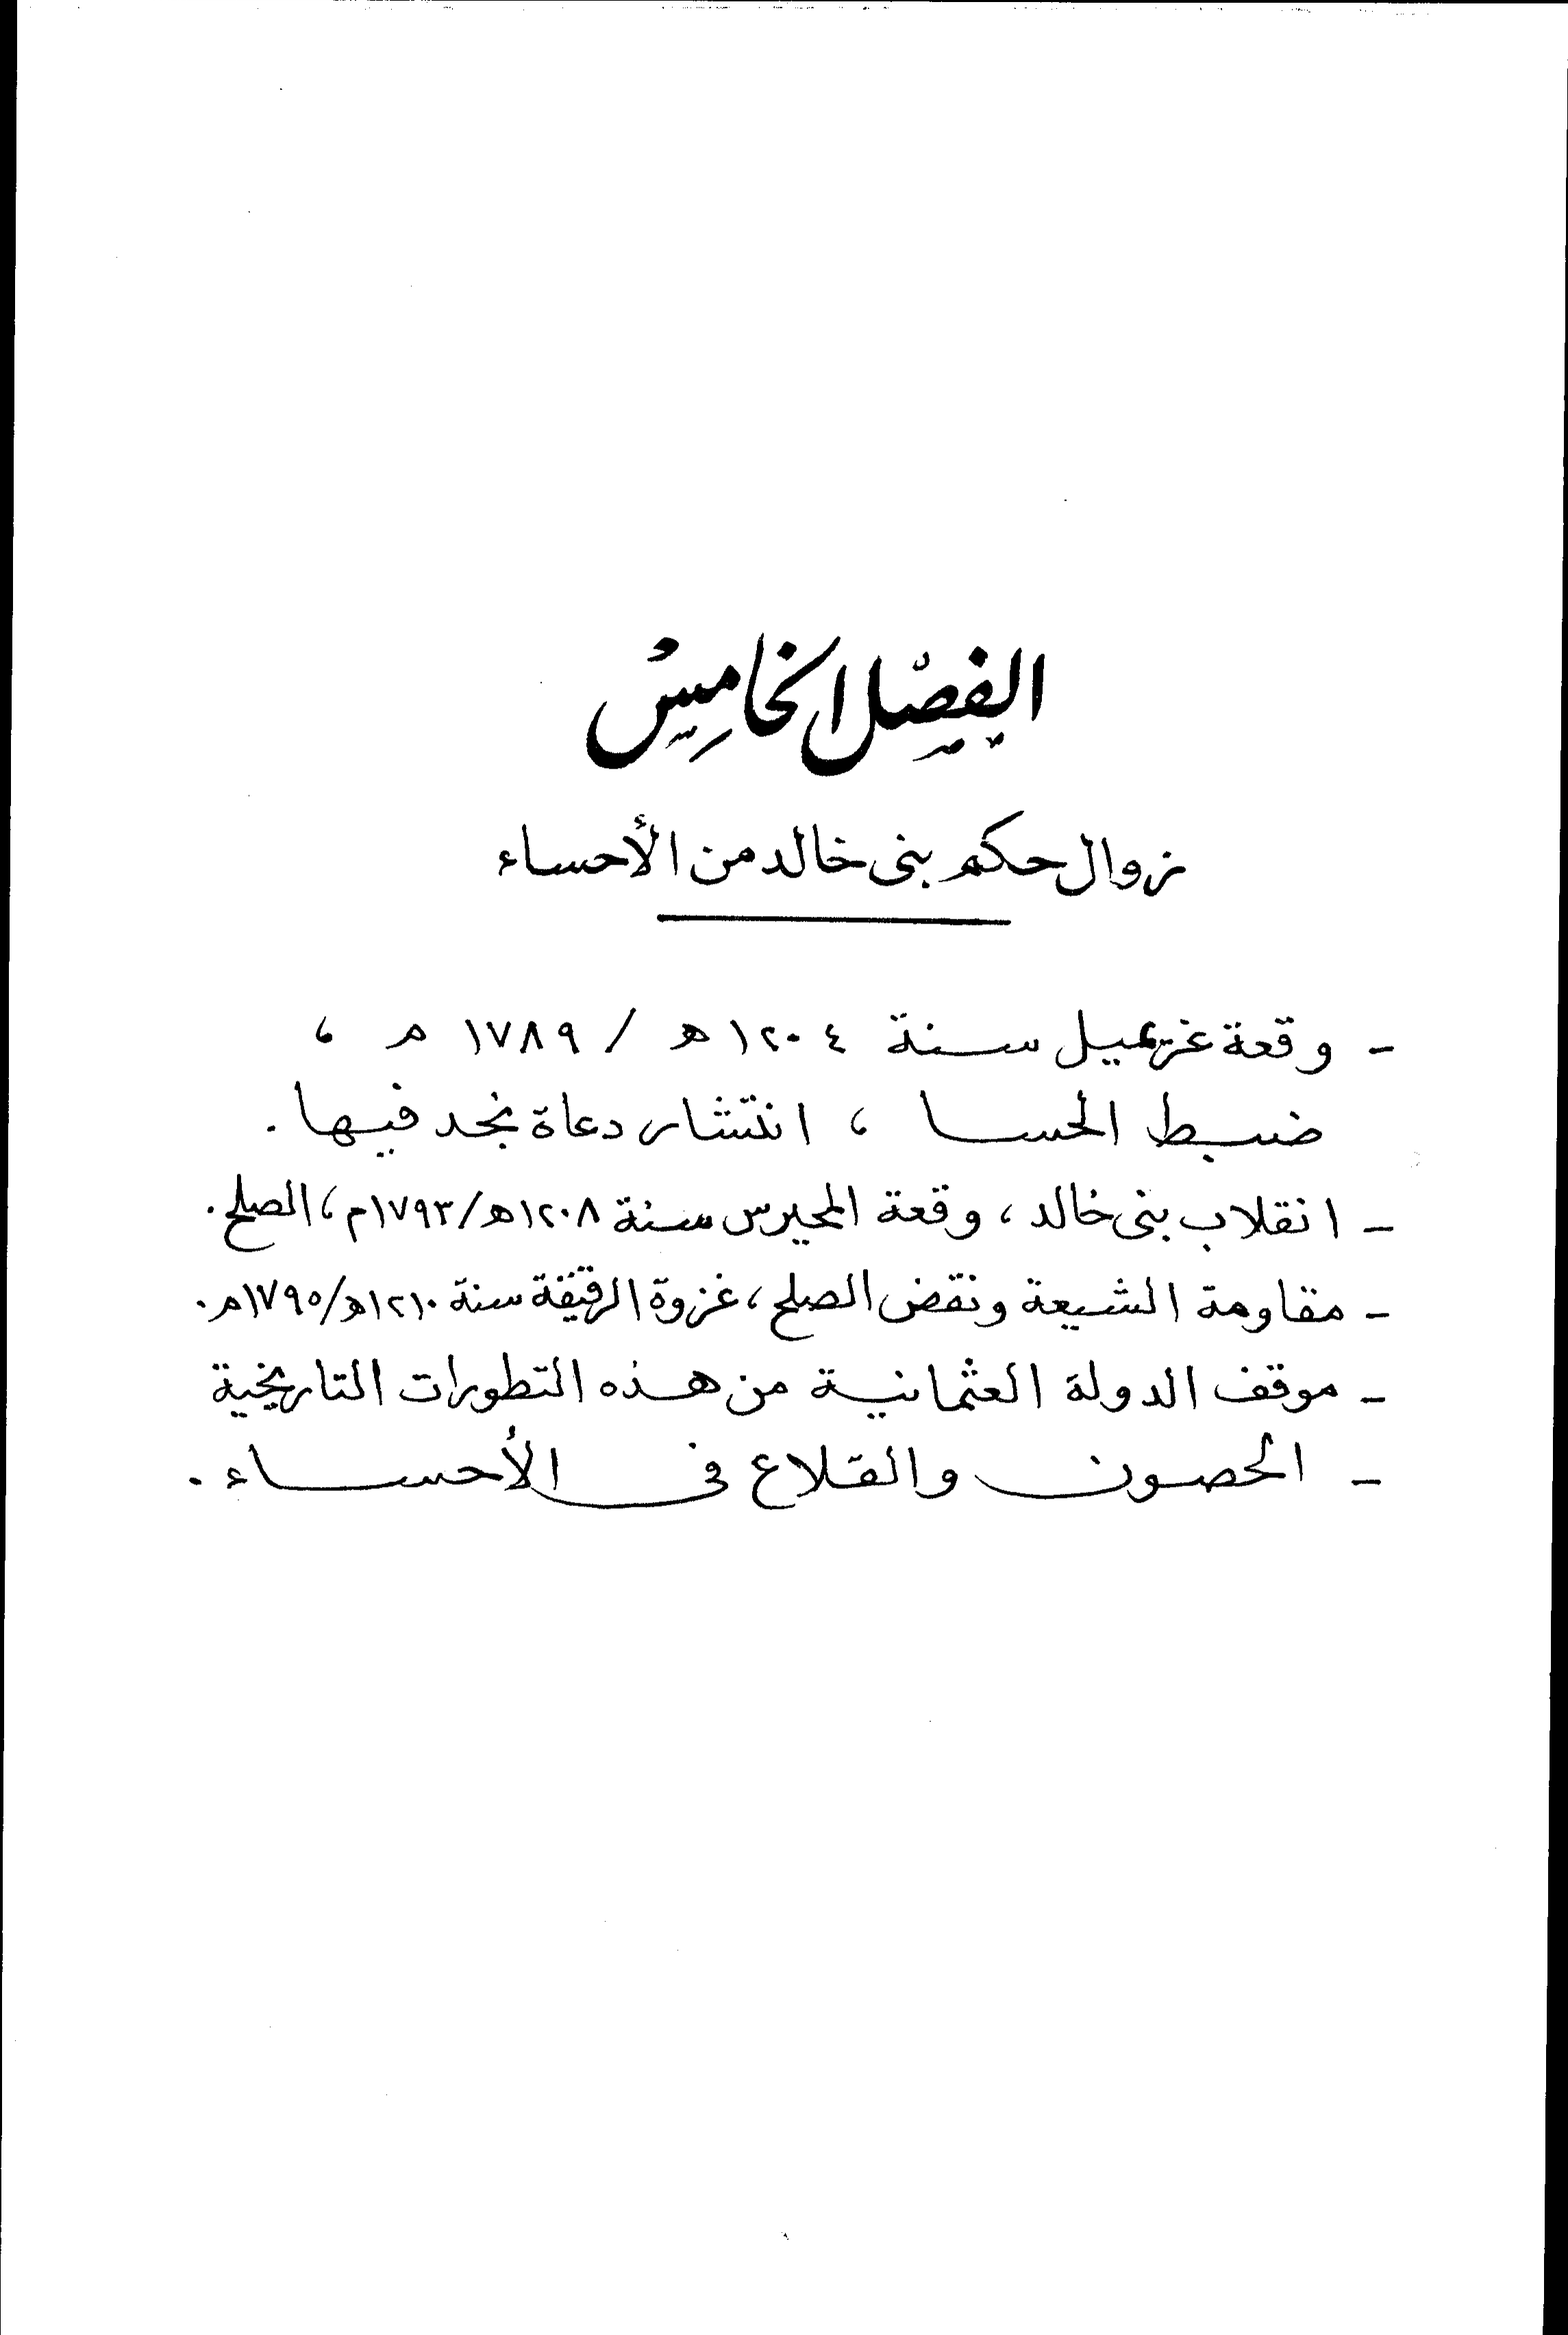 الفصل الخامس
زوال حكم بنى خالد من الأحساء
- وقعة غريميل سنة ١٢٠٤ هـ / ١٧٨٩ م ،
ضبط الحسا ، انتشار دعاة نجد فيها .
- انقلاب بنى خالد ، وقعة المحيرس سنة ١٢٠٨هـ/١٧٩٣م ، الصلح .
- مقاومة الشيعة ونقض الصلح ، غزوة الرقيقة سنة ١٢١٠هـ/١٧٩٥م .
- موقف الدولة العثمانية من هذه التطورات التاريخية
- الحصون والقلاع فى الأحساء .